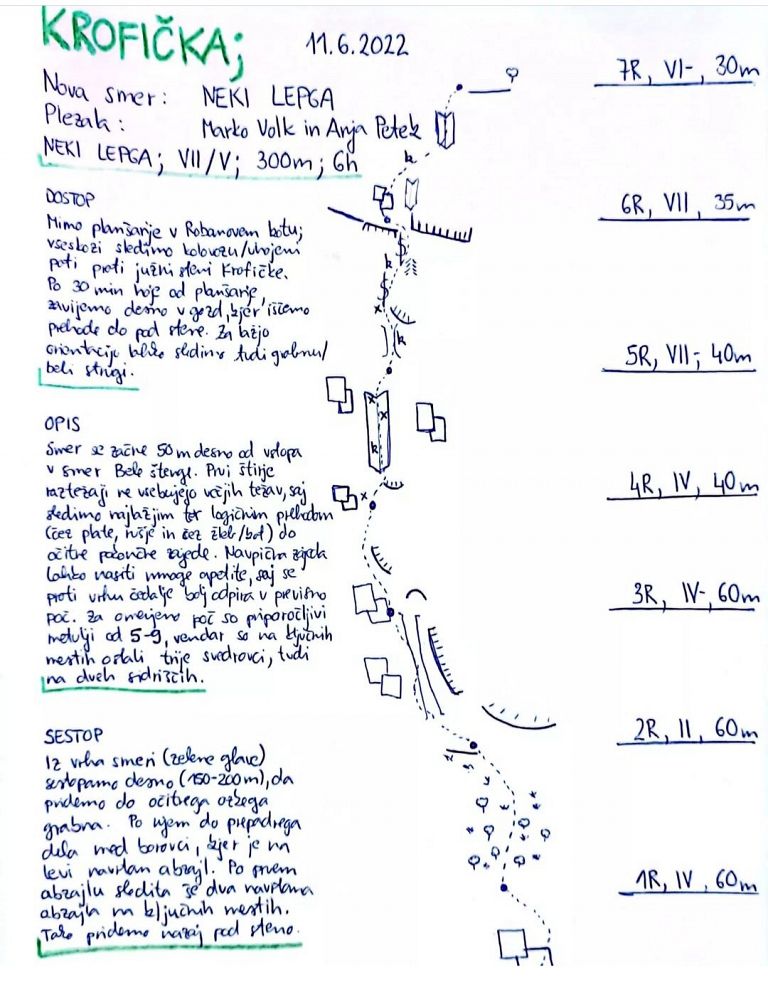 KROFIČKA;
11.6.2022
Nova smer: NEKI LEPGA
Plezala: Marko Volk in Anja Petek
NEKI LEPGA; VII/V; 300m; 6h
DOSTOP
Mimo planšarije v Robanovem kotu;
vseskozi sledimo kolovozu/uhojeni
poti proti južni steni Krofičke.
Po 30 min hoje od planšarije,
zavijemo desno v gozd, kjer iščemo
prehode do pod stene. Za lažjo
orientacijo lahko sledimo tudi grabnu/
beli strugi.
OPIS
Smer se začne 50 m desno od vstopa
v smer Bele štenge. Prvi štirje
raztežaji ne vsebujejo večjih težav, saj
sledimo najlažjim ter logičnim prehodom
(čez plate, rušje in čez žleb/kot) do
očitne pokončne zajede. Navpična zajeda
lahko nasiti mnoge apetite, saj se
proti vrhu čedalje bolj odpira v previsno
poč. Za omenjeno poč so priporočljivi
metulji od 5-9, vendar so na ključnih
mestih ostali trije svedrovci, tudi
na dveh sidriščih.
SESTOP
Iz vrha smeri (zelene glave)
sestopamo desno (150-200m), da
pridemo do očitnega ozkega
grabna. Po njem do prepadnega
dela med borovci, kjer je na
levi navrtan abzajl. Po prvem
abzajlu sledita še dva navrtana
abzajla na ključnih mestih.
Tako pridemo nazaj pod steno.
7R, VI-, 30m
6R, VII, 35m
5R, VII-, 40m
4R, IV, 40m
3R, IV-, 60m
2R, II, 60m
1R, IV, 60m
k
k
k
k